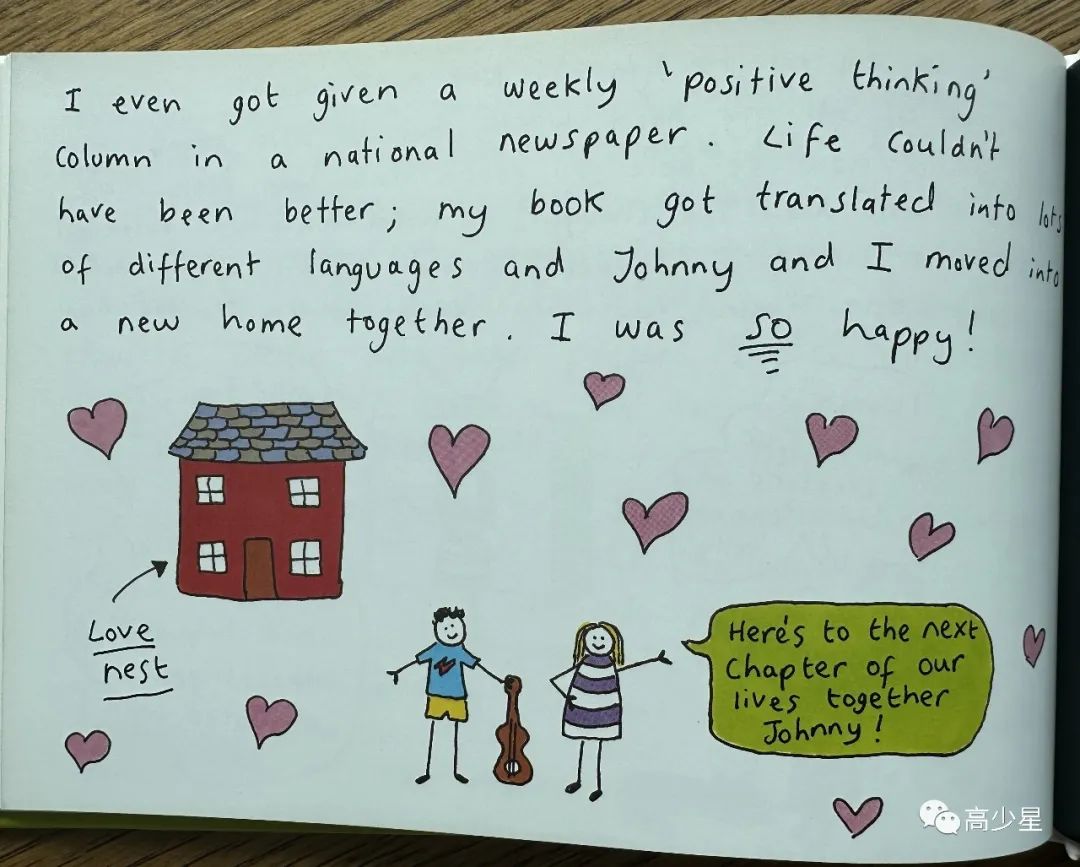 I even got given a weekly 'positive thinking'
column in a national newspaper. Life couldn't
have been better; my book got translated into lots
of different languages and Johnny and I moved into
a new home together. I was SO happy!
Love
nest
Here's to the next
Chapter of our
lives together
Johnny!
高少星